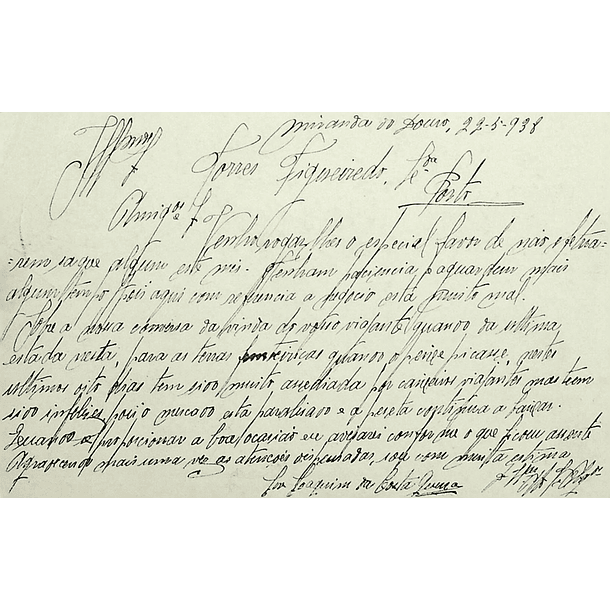 Miranda do Douro, 22-5-938
Illmos
Torres Figueiredo, Lda
Porto
Amigos e Srs
Tenho rogar lhes o especial favor de não efetua=
=rem saque algum este mis. Tenham paciencia, aguardem mais
algum tempo pois aqui com referencia a negocio está muito mal.
Sobre a nossa conversa da vinda do vosso viajante quando da ultima
estada nesta, para as terras quando o peixe picasse, nestes
ultimos oito dias tem sido muito assediada por varios viajantes mas tem
sido infelizes, pois o mercado está paralisado e a peseta continua a baixar.
Quando se proporcionar a boa ocasião eu avisarei conforme o que ficou assente
Agradecendo mais uma vez as atenções dispensadas, sou com muita estima
Por Joaquim da Costa Guerra